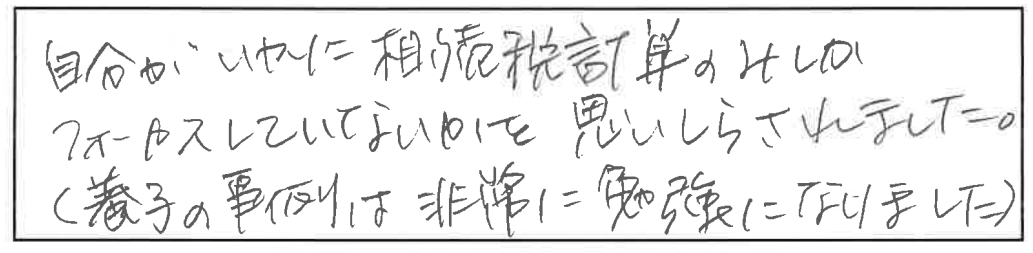 自分がいかに相続税計算のみしか
フォーカスしていてないかを思いしらされました。
(養子の事例は非常に勉強になりました)